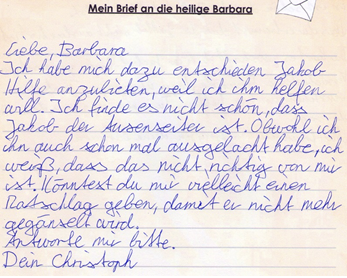 Mein Brief an die heilige Barbara
Liebe, Barbara
Ich habe mich dazu entschieden Jakob
Hilfe anzubieten, weil ich ihm helfen
will. Ich finde es nicht schön, dass
Jakob der Ausenseiter ist. Obwohl ich
ihn auch schon mal ausgelacht habe, ich
weiß, dass das nicht richtig von mir
ist. Könntest du mir vielleicht einen
Ratschlag geben, damit er nicht mehr
gegänselt wird.
Antworte mir bitte.
Dein Christoph